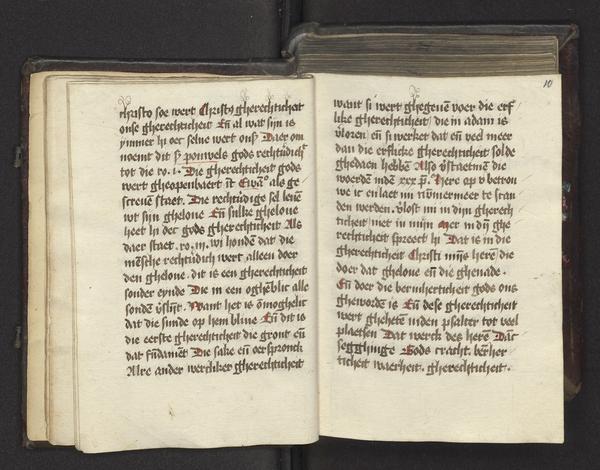 christo soe wert Christus gherechticheit
onse gherechticheit Eñ al wat sijn is
ymmer hi oec selue wert onß Daer om
noemt dit s̄ pouwels gods rechtūdich
tot die ro. i. Die gherechticheit gods
wert gheopenbaert īt Ewāᵗ als ge
screuē staet. Die rechtūdige sel leuē
wt sijn gheloue Eñ sulke gheloue
heet hi der gods gherechticheit Als
daer staet. ro. iii. wi houdē dat die
mēsche rechtūdich wert alleen doer
den gheloue. dit is een gherechticheit
sonder eynde Die in een oghēblic alle
sondē v̄slijt. Want het is ōmoghelic
dat die sunde op hem bliue Eñ dit is
die eerste gherechticheit die gront eñ
dat fūdamēt Die sake eñ oerspronck
Alre ander wercliker gherechticheit
10
want si wert ghegeuē voer die erf
like gherechticheit die in adam is
v̄loren eñ si werket dat eñ veel meer
dan die erflicke gherechticheit solde
ghedaen hebbē Also v̄staetmē die
woerdē indē xxx. p̄. Here op v betrou
we ic en laet mi nv̄mermeer te scan
den werden. v̄lost mi in dijn gherech
ticheit niet in mijn Mer in dijn ghe
rechticheit spreect hi Dat is in die
gherechticheit Christi mijs herē die
doer dat gheloue eñ die ghenade.
Eñ doer die bermherticheit gods ons
ghewordē is Eñ dese gherechticheit
wert ghehetē inden psalter tot veel
plaetsen Dat werck des herē Dat
segghinge Gods cracht. bērher
ticheit waerheit. gherechticheit.